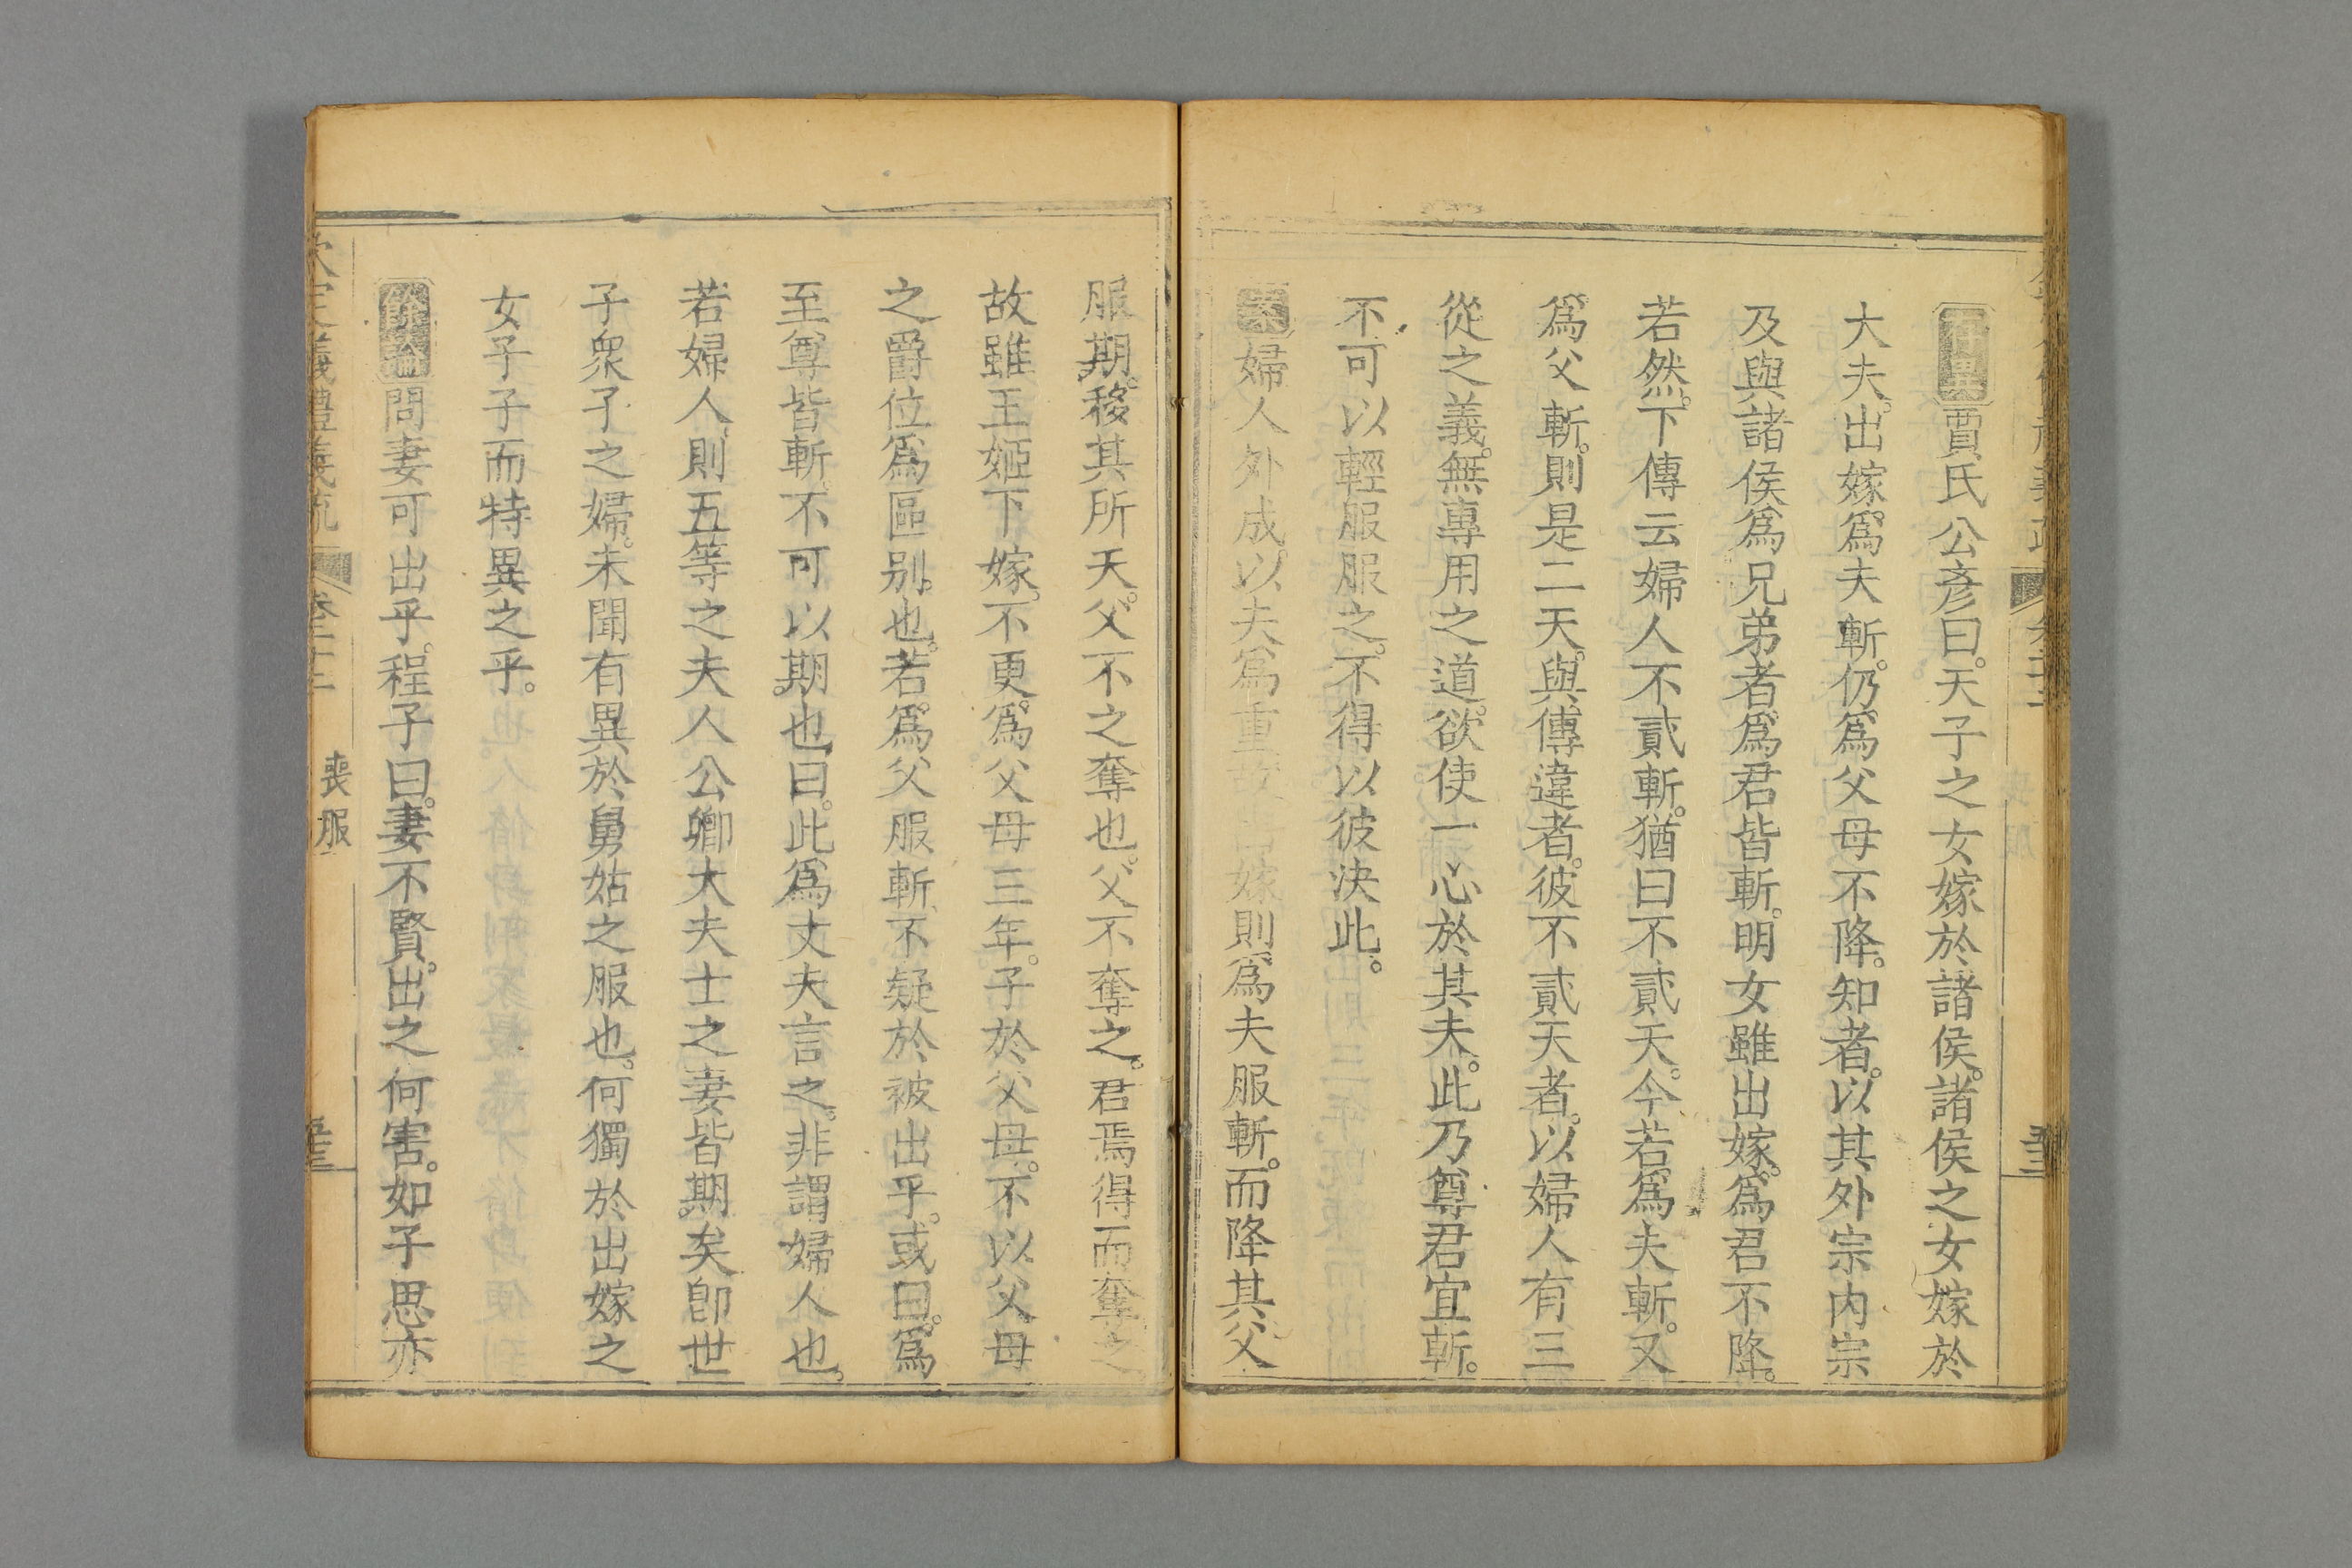 賈氏公彥曰。天子之女嫁於諸侯。諸侯之女嫁於
大夫。出嫁爲夫斬。仍爲父母不降。知者。以其外宗內宗
及與諸侯爲兄弟者。爲君皆斬。明女雖出嫁。爲君不降。
若然。下傳云婦人不貳斬。猶曰不貳天。今若爲夫斬。又
爲父斬。則是二天。與傳違者。彼不貳天者。以婦人有三
從之義。無專用之道。欲使一心於其夫。此乃尊君宜斬。
不可以輕服服之。不得以彼決此。
案婦人外成。以夫爲重故出嫁則爲夫服斬。而降其父
服期。移其所天。父不之奪也。父不奪之。君焉得而奪之
故雖王姬下嫁。不更爲父母三年。子於父母。不以父母
之爵位爲區别也。若爲父服斬。不疑於被出乎。或曰。爲
至尊皆斬。不可以期也。曰。此爲丈夫言之。非謂婦人也。
若婦人。則五等之夫人公卿大夫士之妻皆期矣。卽世
子衆子之婦。未聞有異於舅姑之服也。何獨於出嫁之
女子子而特異之乎。
餘論問妻可出乎。程子曰。妻不賢。出之何害。如子思亦
欽定義禮義疏
卷二十二
喪服